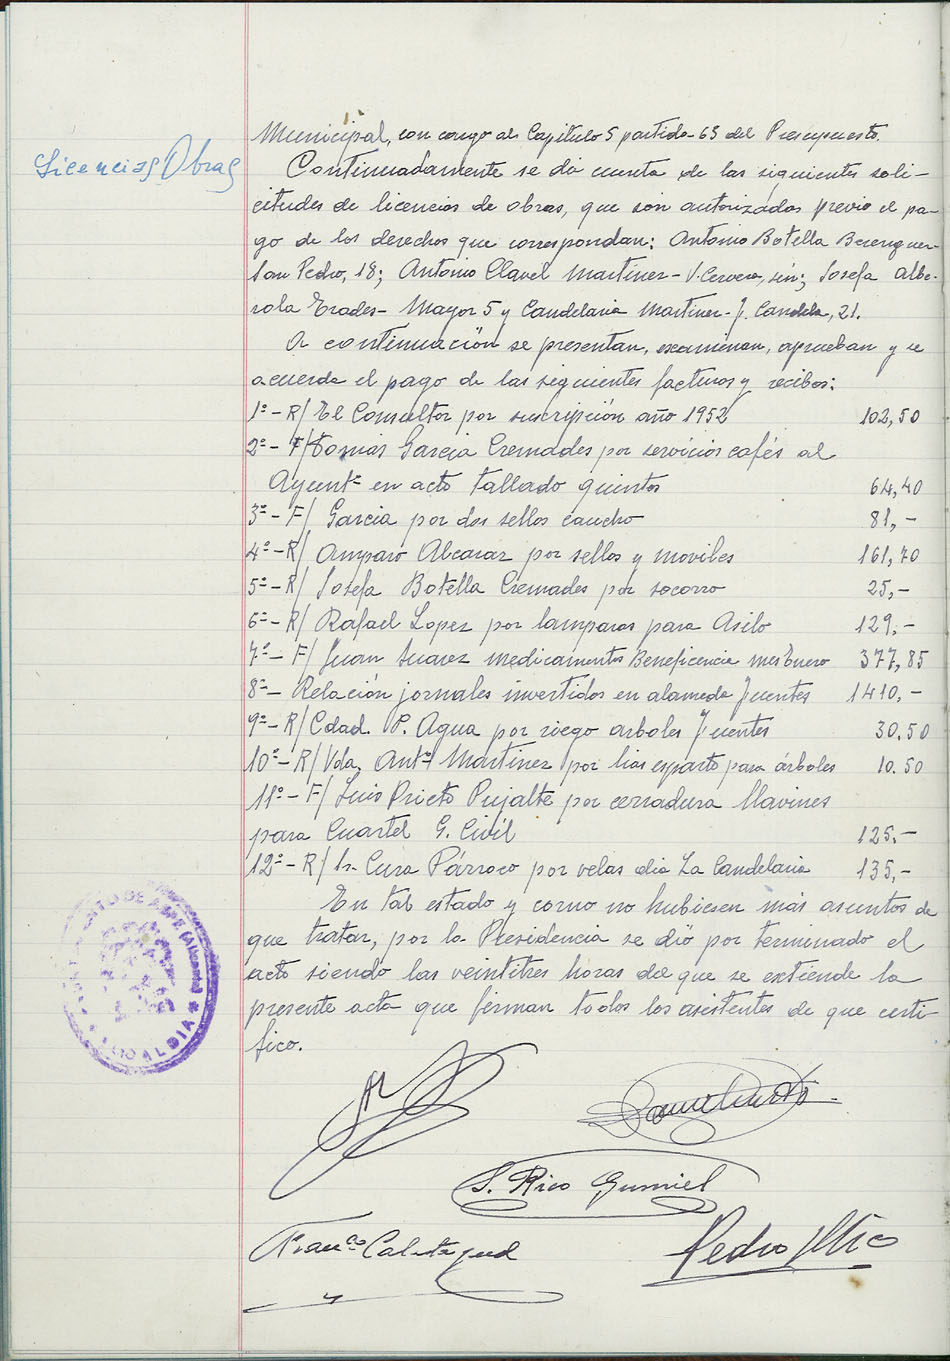 Municipal, con cargo al Capitulo 5 partida-63 del Presupuesto.
Licencias Obras
Continuadamente se dá cuenta de las siguientes soli-
citudes de licencias de obras, que son autorizadas previo el pa-
go de los derechos que correspondan: Antonio Botella Berenguer-
San Pedro, 18; Antonio Clavel Martinez- V. Cervera, s/n; Josefa Albe-
rola Erades- Mayor 5 y Candelaria Martinez- J. Candela, 21.
A continuación se presentan, examinan, aprueban y se
acuerda el pago de las siguientes facturas y recibos:
1º- R/ El Consultor por suscripción año 1952 102,50
2º- F/ Tomás Garcia Cremades por servicios cafés al
Ayuntº en acto tallado quintos 64,40
3º- F/ Garcia por dos sellos caucho 81,-
4º- R/ Amparo Alcaraz por sellos y moviles 161,70
5º- R/ Josefa Botella Cremades por socorro 25,-
6º- R/ Rafael Lopez por lamparas para Asilo 129,-
7º- F/ Juan Suarez medicamentos Beneficencia mes Enero 377,85
8º- Relación jornales invertidos en alameda Fuentes 1410,-
9º- R/ Cdad. P. Agua por riego arboles Fuentes 30.50
10º- R/ Vda. Antº Martinez por lias esparto para árboles 10.50
11º- F/ Luis Prieto Pujalte por cerradura llavines
para Cuartel G. Civil 125.-
12º- R/ Sr. Cura Párroco por velas dia La Candelaria 135,-
En tal estado y como no hubiesen más asuntos de
que tratar, por la Presidencia se dió por terminado el
acto siendo las veintitres horas del que se extiende la
presente acta que firman todos los asistentes de que certi-
fico.
ALCALDIA
S. Rico Gumiel
Francº Calatayud
Pedro